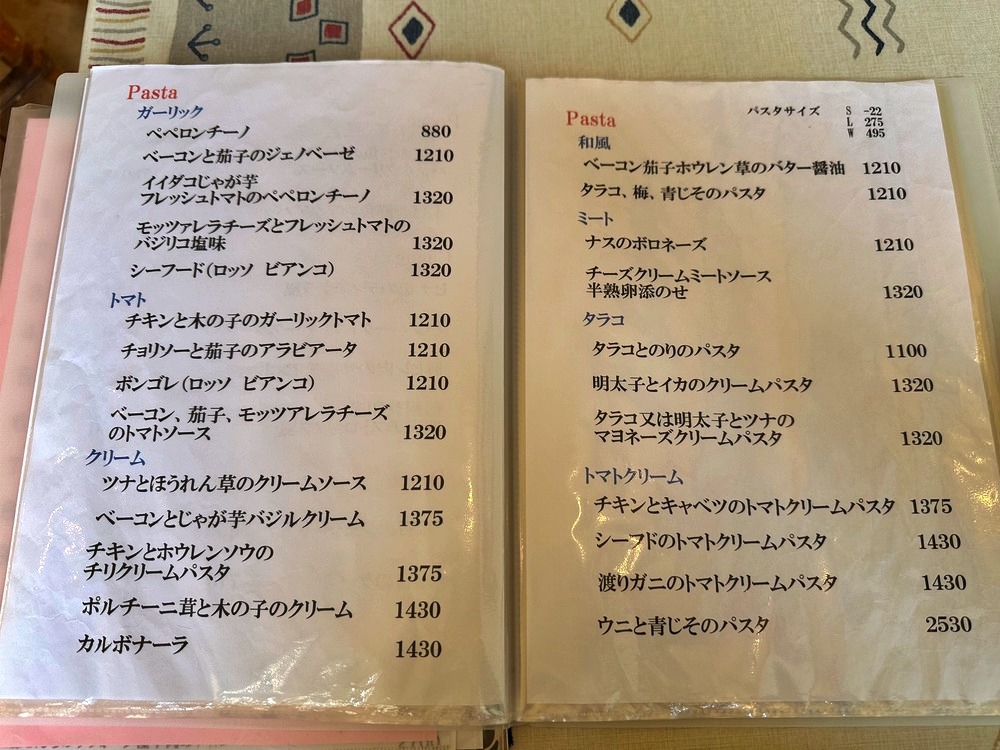 Pasta
ガーリック
ペペロンチーノ 880
ベーコンと茄子のジェノベーゼ 1210
イイダコじゃが芋
フレッシュトマトのペペロンチーノ 1320
モッツァレラチーズとフレッシュトマトの
バジリコ塩味 1320
シーフード(ロッソ ビアンコ) 1320
トマト
チキンと木の子のガーリックトマト 1210
チョリソーと茄子のアラビアータ 1210
ボンゴレ(ロッソ ビアンコ) 1210
ベーコン、茄子、モッツアレラチーズ
のトマトソース 1320
クリーム
ツナとほうれん草のクリームソース 1210
ベーコンとじゃが芋バジルクリーム 1375
チキンとホウレンソウの
チリクリームパスタ 1375
ポルチーニ茸と木の子のクリーム 1430
カルボナーラ 1430
Pasta
パスタサイズ S -22
L 275
W 495
和風
ベーコン茄子ホウレン草のバター醤油 1210
タラコ、梅、青じそのパスタ 1210
ミート
ナスのボロネーズ 1210
チーズクリームミートソース
半熟卵添のせ 1320
タラコ
タラコとのりのパスタ 1100
明太子とイカのクリームパスタ 1320
タラコ又は明太子とツナの
マヨネーズクリームパスタ 1320
トマトクリーム
チキンとキャベツのトマトクリームパスタ 1375
シーフドのトマトクリームパスタ 1430
渡りガニのトマトクリームパスタ 1430
ウニと青じそのパスタ 2530